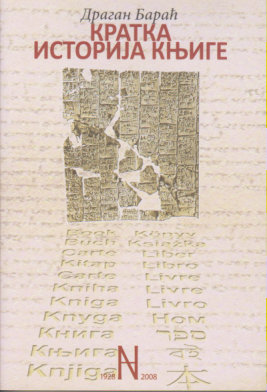 Драган Бараћ
КРАТКА
ИСТОРИЈА КЊИГЕ
Book Könyv
Buch Książka
Carte Liber
Kitap Libro
Carte Livre
Kniha Livre
Kniga Livro
Knyga Ном
Книга ספר
Књига
Knjiga 本
1928 N 2008